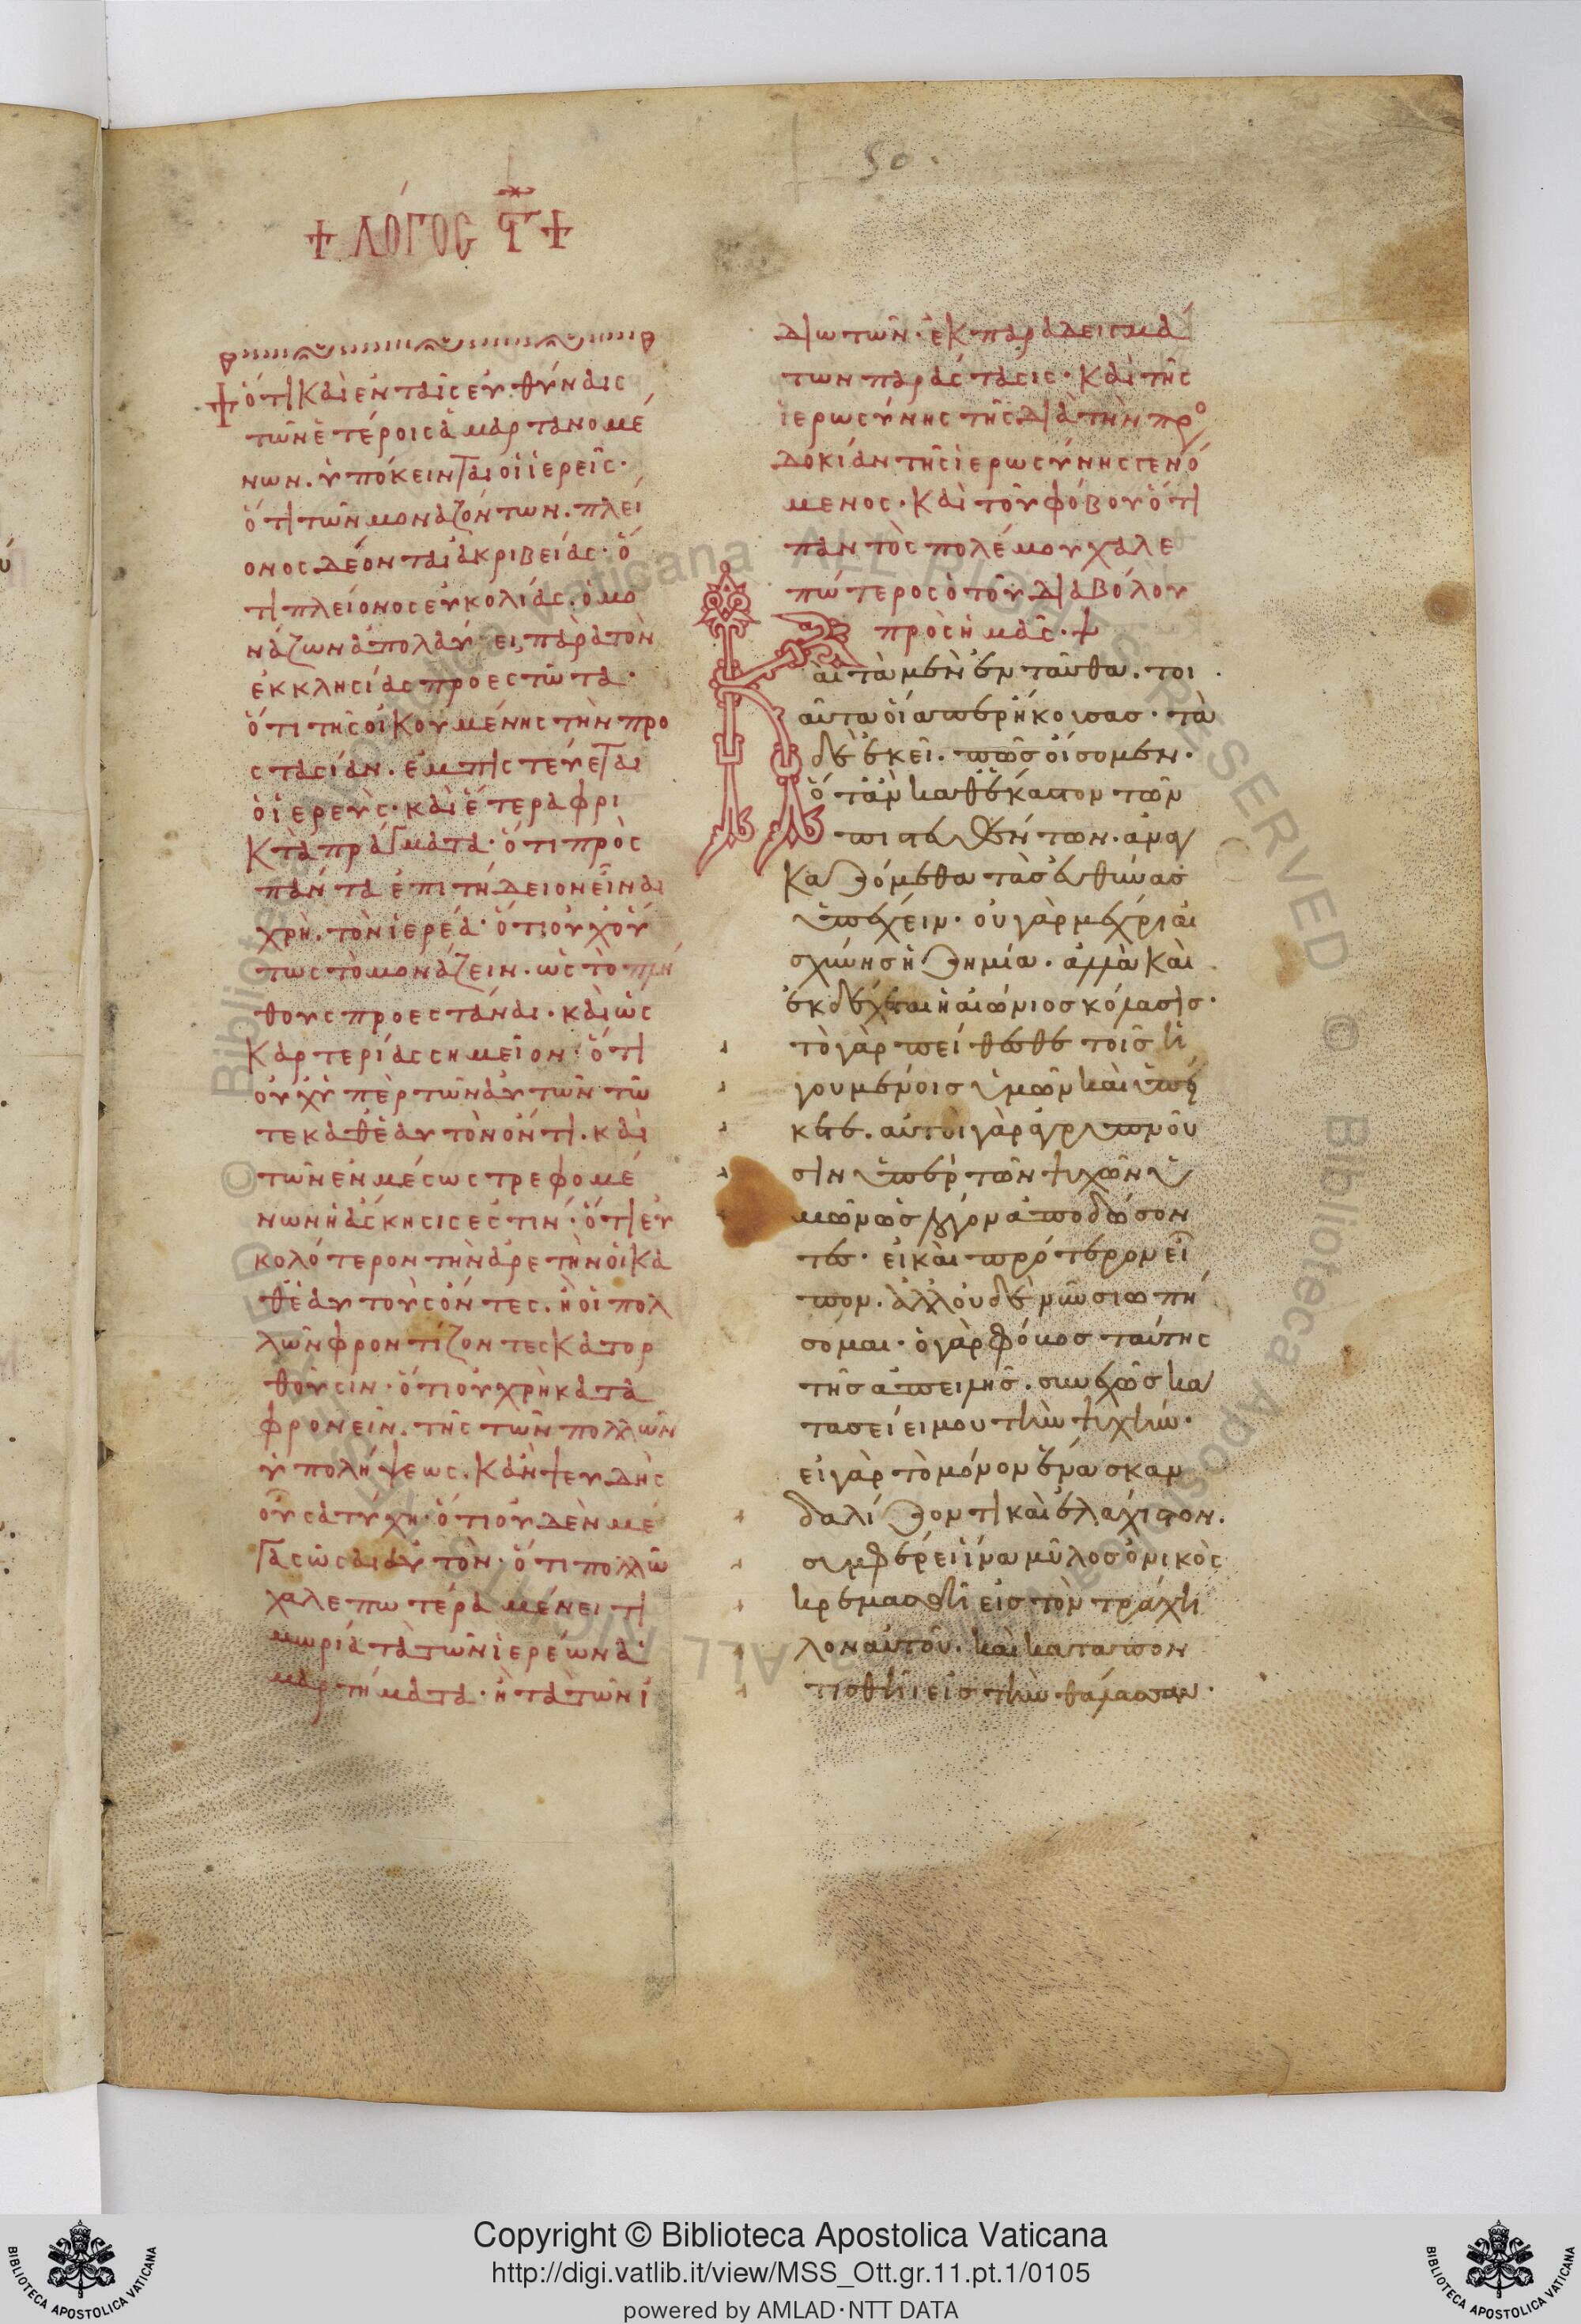 50.
+ ΛΟΓΟC ϛ̄ +
ὅτι καὶ ἐν ταῖς εὐθύναις
τῶν ἑτέροις ἁμαρτανομέ
νων. ὑπόκεινται οἱ ἱερεῖς·
ὅτι τῶν μοναζόντων. πλεί
ονος δέονται ἀκριβείας· ὅ
τι πλείονος εὐκολίας. ὁ μο
νάζων ἀπολαύει, παρὰ τὸν
ἐκκλησίας προεστῶτα·
ὅτι τῆς οἰκουμένης τὴν προ
στασίαν. ἐμπιστεύεται
ὁ ἱερεύς· καὶ ἕτερα φρι
κτὰ πράγματα· ὅτι πρὸς
πάντα ἐπιτήδειον εἶναι
χρὴ. τὸν ἱερέα· ὅτι οὐχ οὕ
τως τὸ μονάζειν. ὡς τὸ πλή
θους προεστάναι. καὶ ὡς
καρτερίας σημεῖον· ὅτι
οὐχ ὑπὲρ τῶν αὐτῶν τῶ
τε καθ' ἑαυτὸν ὄντι. καὶ
τῶν ἐν μέσω στρεφομέ
νων ἡ ἄσκησις ἐστὶν· ὅτι εὐ
κολότερον τὴν ἀρετὴν οἱ κα
θ' ἑαυτοὺς ὄντες. ἢ οἱ πολ
λῶν φροντίζοντες κατορ
θοῦσιν· ὅτι οὐ χρὴ κατα
φρονεῖν. τῆς τῶν πολλῶν
ὑπολήψεως. κἂν ψευδὴς
οὖσα τύχη· ὅτι οὐδὲν μέ
γα σῶσαι αὑτόν· ὅτι πολλῶ
χαλεπωτέρα μένει τι
μωρία τὰ τῶν ἱερέων ἁ
μαρτήματα· ἢ τὰ τῶν ἰ
διωτῶν· ἐκ παραδειγμά
των παράστασις· καὶ τῆς
ἱερωσύνης τῆς διὰ τὴν προ
δοκίαν τῆς ἱερωσύνης γενό
μενος· καὶ τοῦ φόβου ὅτι
παντὸς πολέμου χαλε
πώτερος ὁ τοῦ διαβόλου
πρὸς ἡμᾶς· +
Καὶ τὰ μὲν ἐνταῦθα. τοι
αῦτα οἷάπερ ἤκουσας· τὰ
δὲ ἐκεῖ. πῶς οἴσομεν.
ὅταν καθ' ἕκαστον τῶν
πιστευθέντων. ἀναγ
καζόμεθα τὰς εὐθύνας
ὑπέχειν· οὐ γὰρ μέχρι αἰ
σχύνης ἡ ζημία. ἀλλὰ καὶ
ἐκδέχεται ἡ αἰώνιος κόλασις·
τὸ γὰρ πείθεσθε τοῖς ἡ
γουμένοις ὑμῶν καὶ ὑπεί
κετε. αὐτοὶ γὰρ ἀγρυπνοῦ
σιν ὑπὲρ τῶν ψυχῶν ὑ
μῶν ὡς λόγον ἀποδώσον
τες· εἰ καὶ πρότερον εἶ
πον. ἀλλ' οὐδὲ νῦν σιωπή
σομαι· ὁ γὰρ φόβος ταύτης
τῆς ἀπειλῆς. συνεχῶς κα
τασείει μου τὴν ψυχήν·
εἰ γὰρ τὸ μόνον ἕνα σκαν
δαλίζοντι καὶ ἐλάχιστον.
συμφέρει ἵνα μύλος ὀνικὸς
κρεμασθῆ εἰς τὸν τράχη
λον αὐτοῦ. καὶ καταπον
τισθῆ εἰς τὴν θάλασσαν·
© Biblioteca Apostolica Vaticana ALL RIGHTS RESERVED © Biblioteca Apostolica Vaticana ALL RIGHTS RESERVED
Copyright © Biblioteca Apostolica Vaticana
http://digi.vatlib.it/view/MSS_Ott.gr.11.pt.1/0105
powered by AMLAD·NTT DATA
BIBLIOTECA APOSTOLICA VATICANA
BIBLIOTECA APOSTOLICA VATICANA